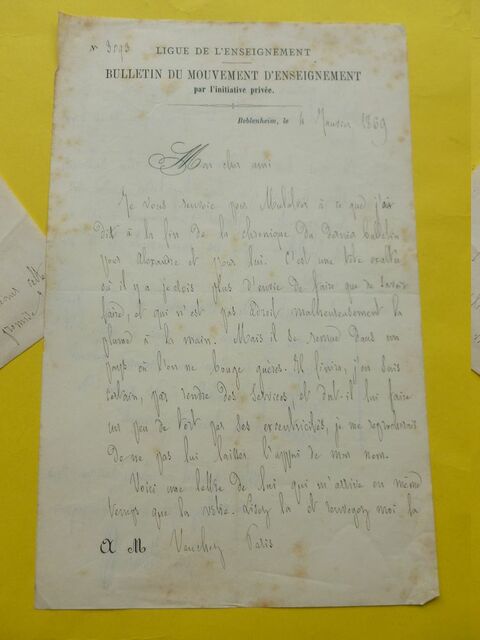 N° 3093
LIGUE DE L'ENSEIGNEMENT
BULLETIN DU MOUVEMENT D'ENSEIGNEMENT
par l'initiative privée.
Beblenheim, le 4 Janvier 1869
Mon cher ami
Je vous renvoie pour à ce que j'ai
dit à la fin de la chronique du dernier bulletin
pour Alexandre et pour lui. C'est une tête exaltée
où il y a plus d'envie de faire que de savoir
faire, et qui n'est pas adroit malheureusement la
plume à la main. Mais il se remue dans un
pays où l'on ne bouge guères. Il finira, j'en suis
certain, par rendre des services, et dut-il lui faire
un peu de tort par ses excentricités, je me reprocherais
de ne pas lui laisser l'appui de mon nom.
Voici une lettre de lui qui m'arrive en même
temps que la vôtre. Lisez la et renvoyez moi la
A M Vauchez Paris